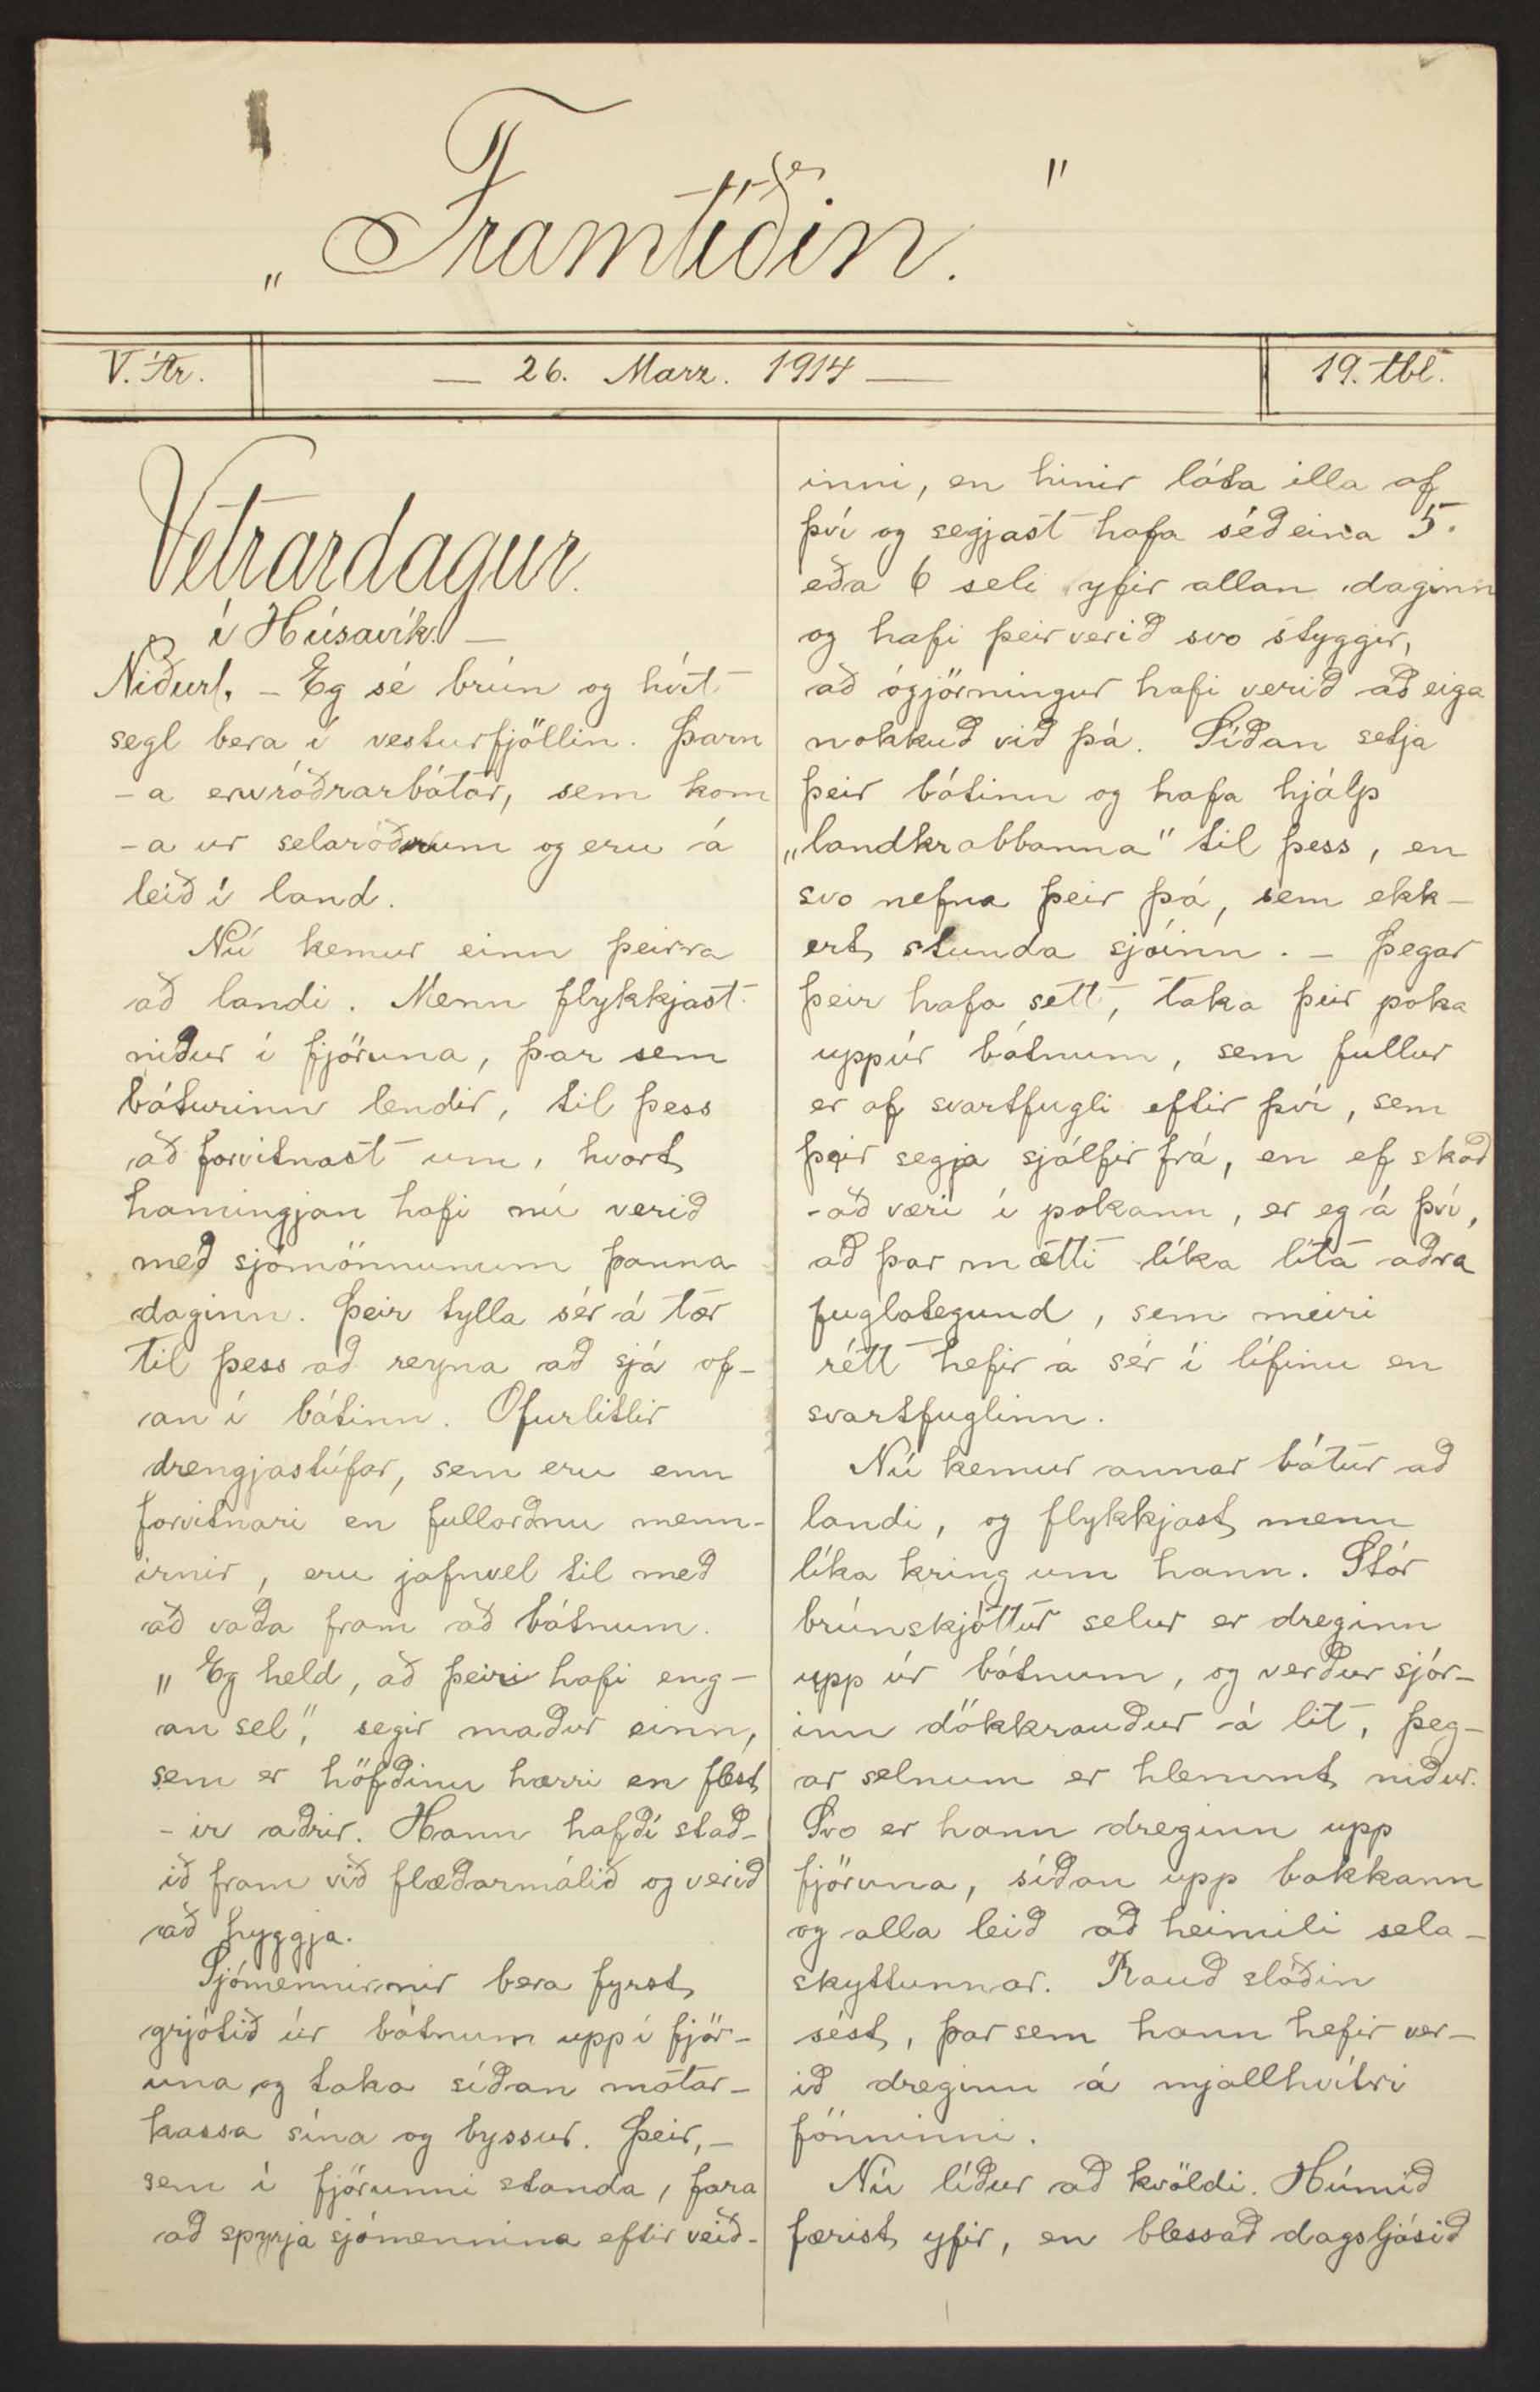 „Framtíðin."
V. Ár.
— 26. Marz. 1914 —
19. tbl.
Vetrardagur
í Húsavík. —
Niðurl. - Eg sé brún og hvít
segl bera í vesturfjöllin. Þarn
-a eru róðrarbátar, sem kom
-a ur selaróðrum og eru á
leið í land.
Nú kemur einn þeirra
að landi. Menn flykkjast
niður í fjöruna, þar sem
báturinn lendir, til þess
að forvitnast um, hvort
hamingjan hafi nú verið
með sjómönnunum þanna
daginn. Þeir tylla sér á tær
til þess að reyna að sjá of-
an í bátinn. Ofurlitlir
drengjastúfar, sem eru enn
forvitnari en fullorðnu menn-
irnir, eru jafnvel til með
að vaða fram að bátnum.
„Eg held, að þeir hafi eng-
an sel", segir maður einn,
sem er höfðinu hærri en flest
-ir aðrir. Hann hafði stað-
ið fram við flæðarmálið og verið
að hyggja.
Sjómennirnir bera fyrst
grjótið úr bátnum upp í fjör-
una og taka síðan matar-
kassa sína og byssur. Þeir, -
sem í fjörunni standa, fara
að spyrja sjómennina eftir veið-
inni, en hinir láta illa af
því og segjast hafa séð eina 5.
eða 6 seli yfir allan daginn
og hafi þeir verið svo styggir,
að ógjörningur hafi verið að eiga
nokkuð við þá. Síðan setja
þeir bátinn og hafa hjálp
„landkrabbanna" til þess, en
svo nefna þeir þá, sem ekk-
ert stunda sjóinn. - Þegar
þeir hafa sett, taka þeir poka
uppúr bátnum, sem fullur
er af svartfugli eftir því, sem
þeir segja sjálfir frá, en ef skoð
-að væri í pokann, er eg á því,
að þar mætti líka líta aðra
fuglategund, sem meiri
rétt hefir á sér í lífinu en
svartfuglinn.
Nú kemur annar bátur að
landi, og flykkjast menn
líka kring um hann. Stór
brúnskjóttur selur er dreginn
upp úr bátnum, og verður sjór-
inn dökkrauður á lit, þeg-
ar selnum er hlemmt niður.
Svo er hann dreginn upp
fjöruna, síðan upp bakkann
og alla leið að heimili sela-
skyttunnar. Rauð slóðin
sést, þar sem hann hefir ver-
ið dreginn á mjallhvítri
fönninni.
Nú líður að kvöldi. Húmið
færist yfir, en blessað dagsljósið